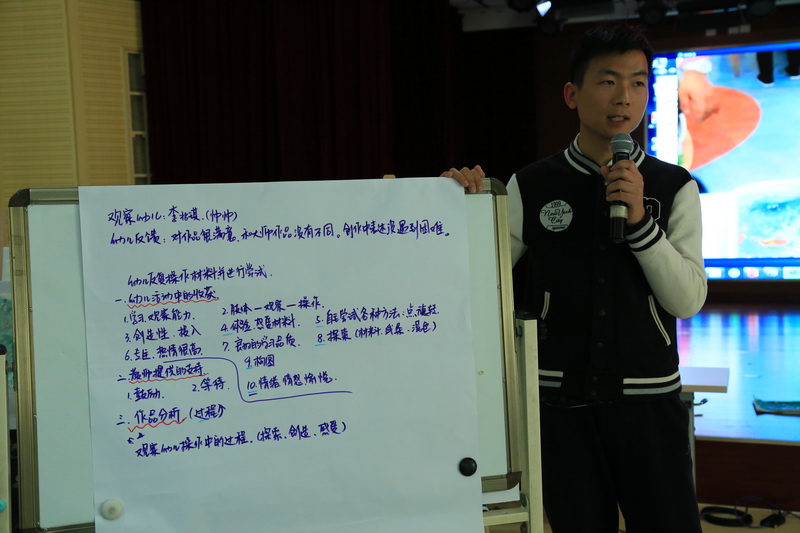 观察幼儿：李兆祺（帅帅）
幼儿反馈：对作品很满意，和大师作品没有不同。创作中表述没遇到困难。
幼儿反复操作材料并进行尝试.
一.幼儿活动中的收获
1.学习.观察能力. 2.肢体—观察—操作.
3.创造性.投入 4.体验.感受材料. 5.自主尝试各种方法:点.
6.专注.热情很高. 7.良好的学习品质 8.探索（材料.线条.混色）
9.构图
10.情绪情感愉悦.
二.教师提供的支持
1.鼓励. 2.等待.
三.作品分析（过程）
观察幼儿操作中的过程.（探索、创造、感受）
New York
City